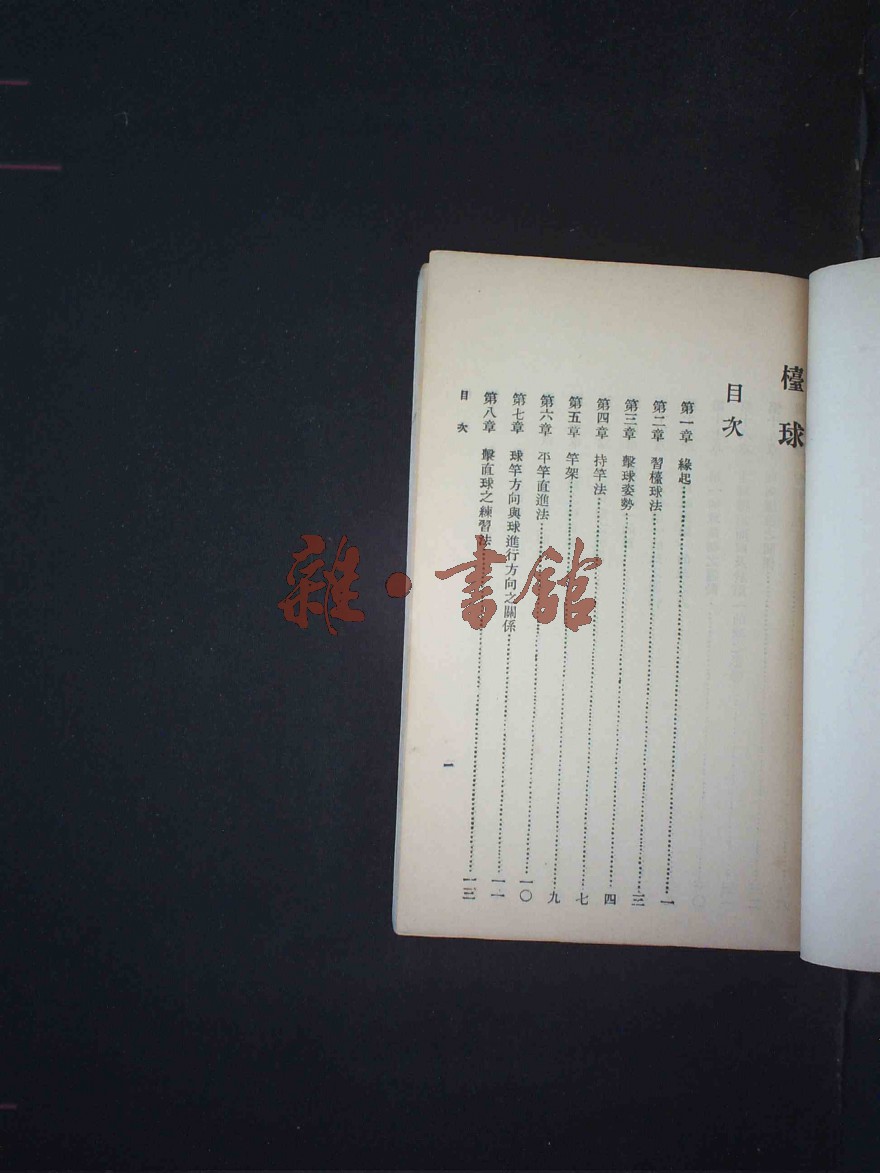 檯球
目次
第一章 緣起……一
第二章 習檯球法……三
第三章 擊球姿勢……四
第四章 持竿法……七
第五章 竿架……九
第六章 平竿直進法……一〇
第七章 球竿方向與球進行方向之關係……一一
第八章 擊直球之練習法……一三
目次
一
雜·書館